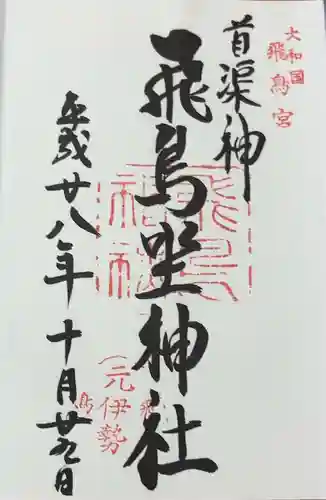 大和国
飛鳥宮
首渠神
飛鳥坐神社
平成廿八年十月廿九日
(元伊勢
飛鳥